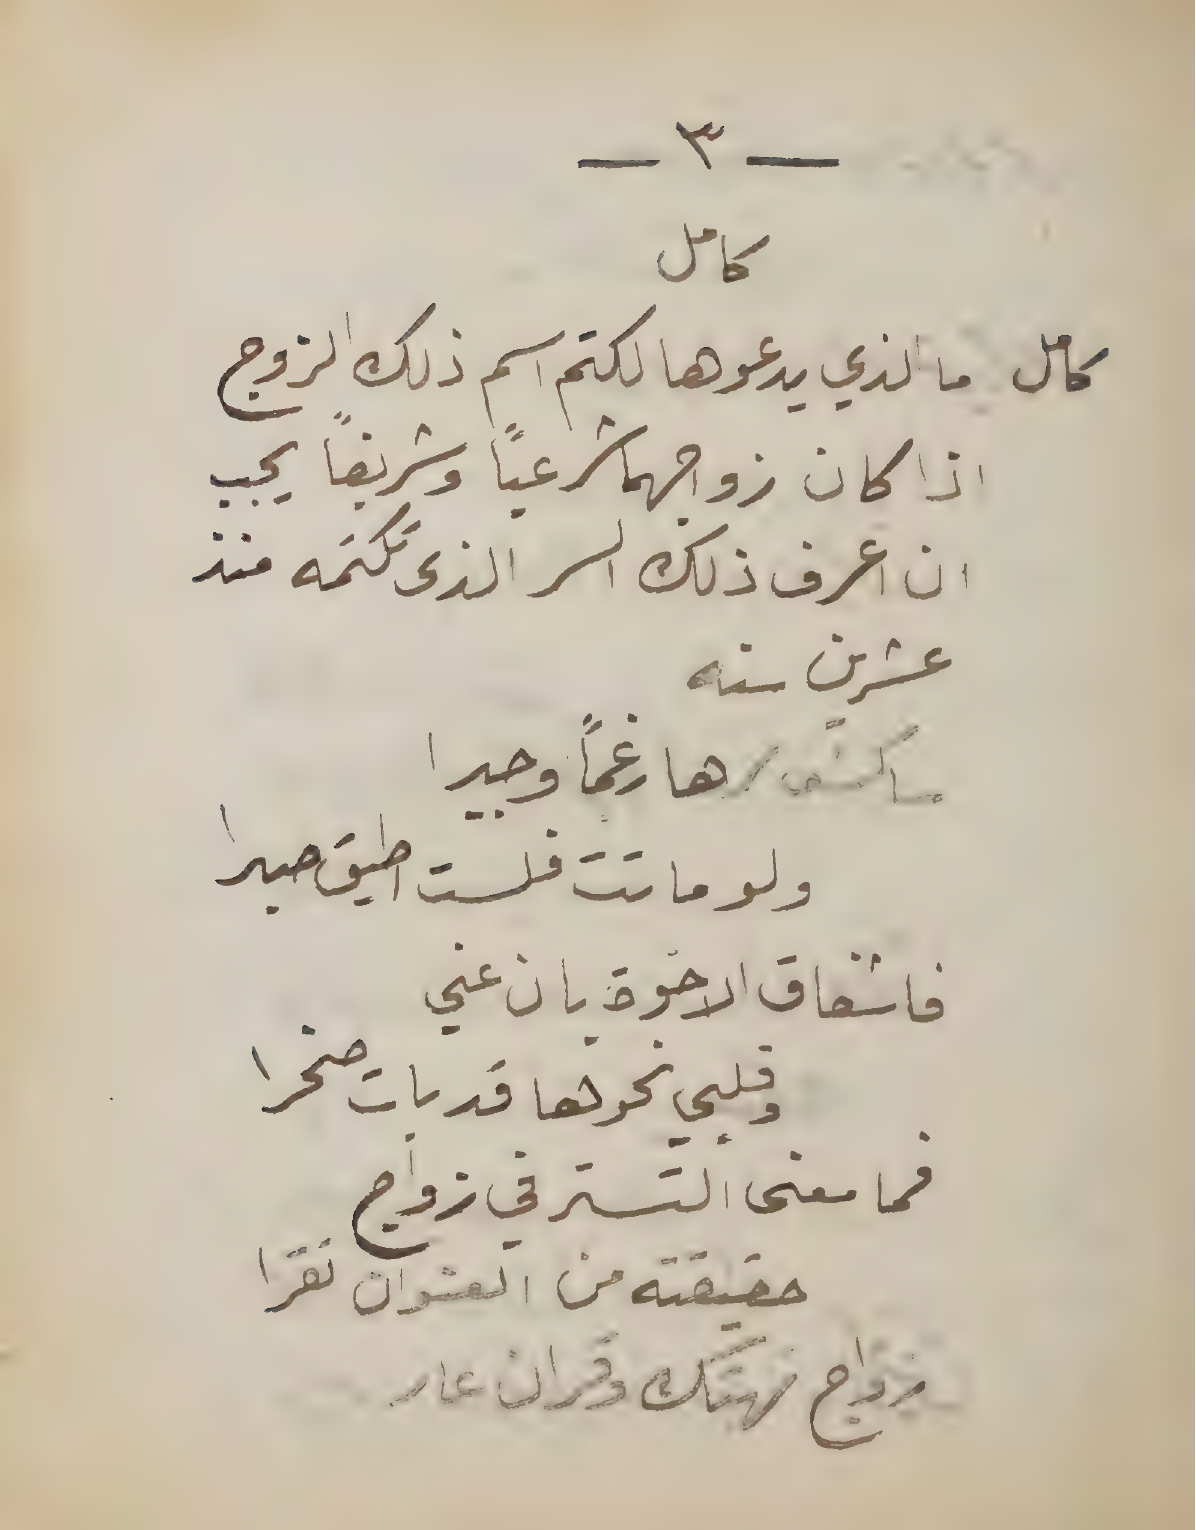 — ٣ —
كامل
كامل ما الذي يدعوها لكتم اسم ذلك الزوج
اذا كان زواجهما شرعيًا وشريفاً يجب
ان اعرف ذلك السر الذى تكتمه منذ
عشرين سنه
ساكشف سرها رغماً وجبرا
ولو ماتت فلست اطيق صبرا
فاشفاق الاخوة بان عني
وقلبي نحوها قد بات صخرا
فما معنى التستر في زواج
حقيقته من العنوان تقرا
زواج تهتك وقران عار